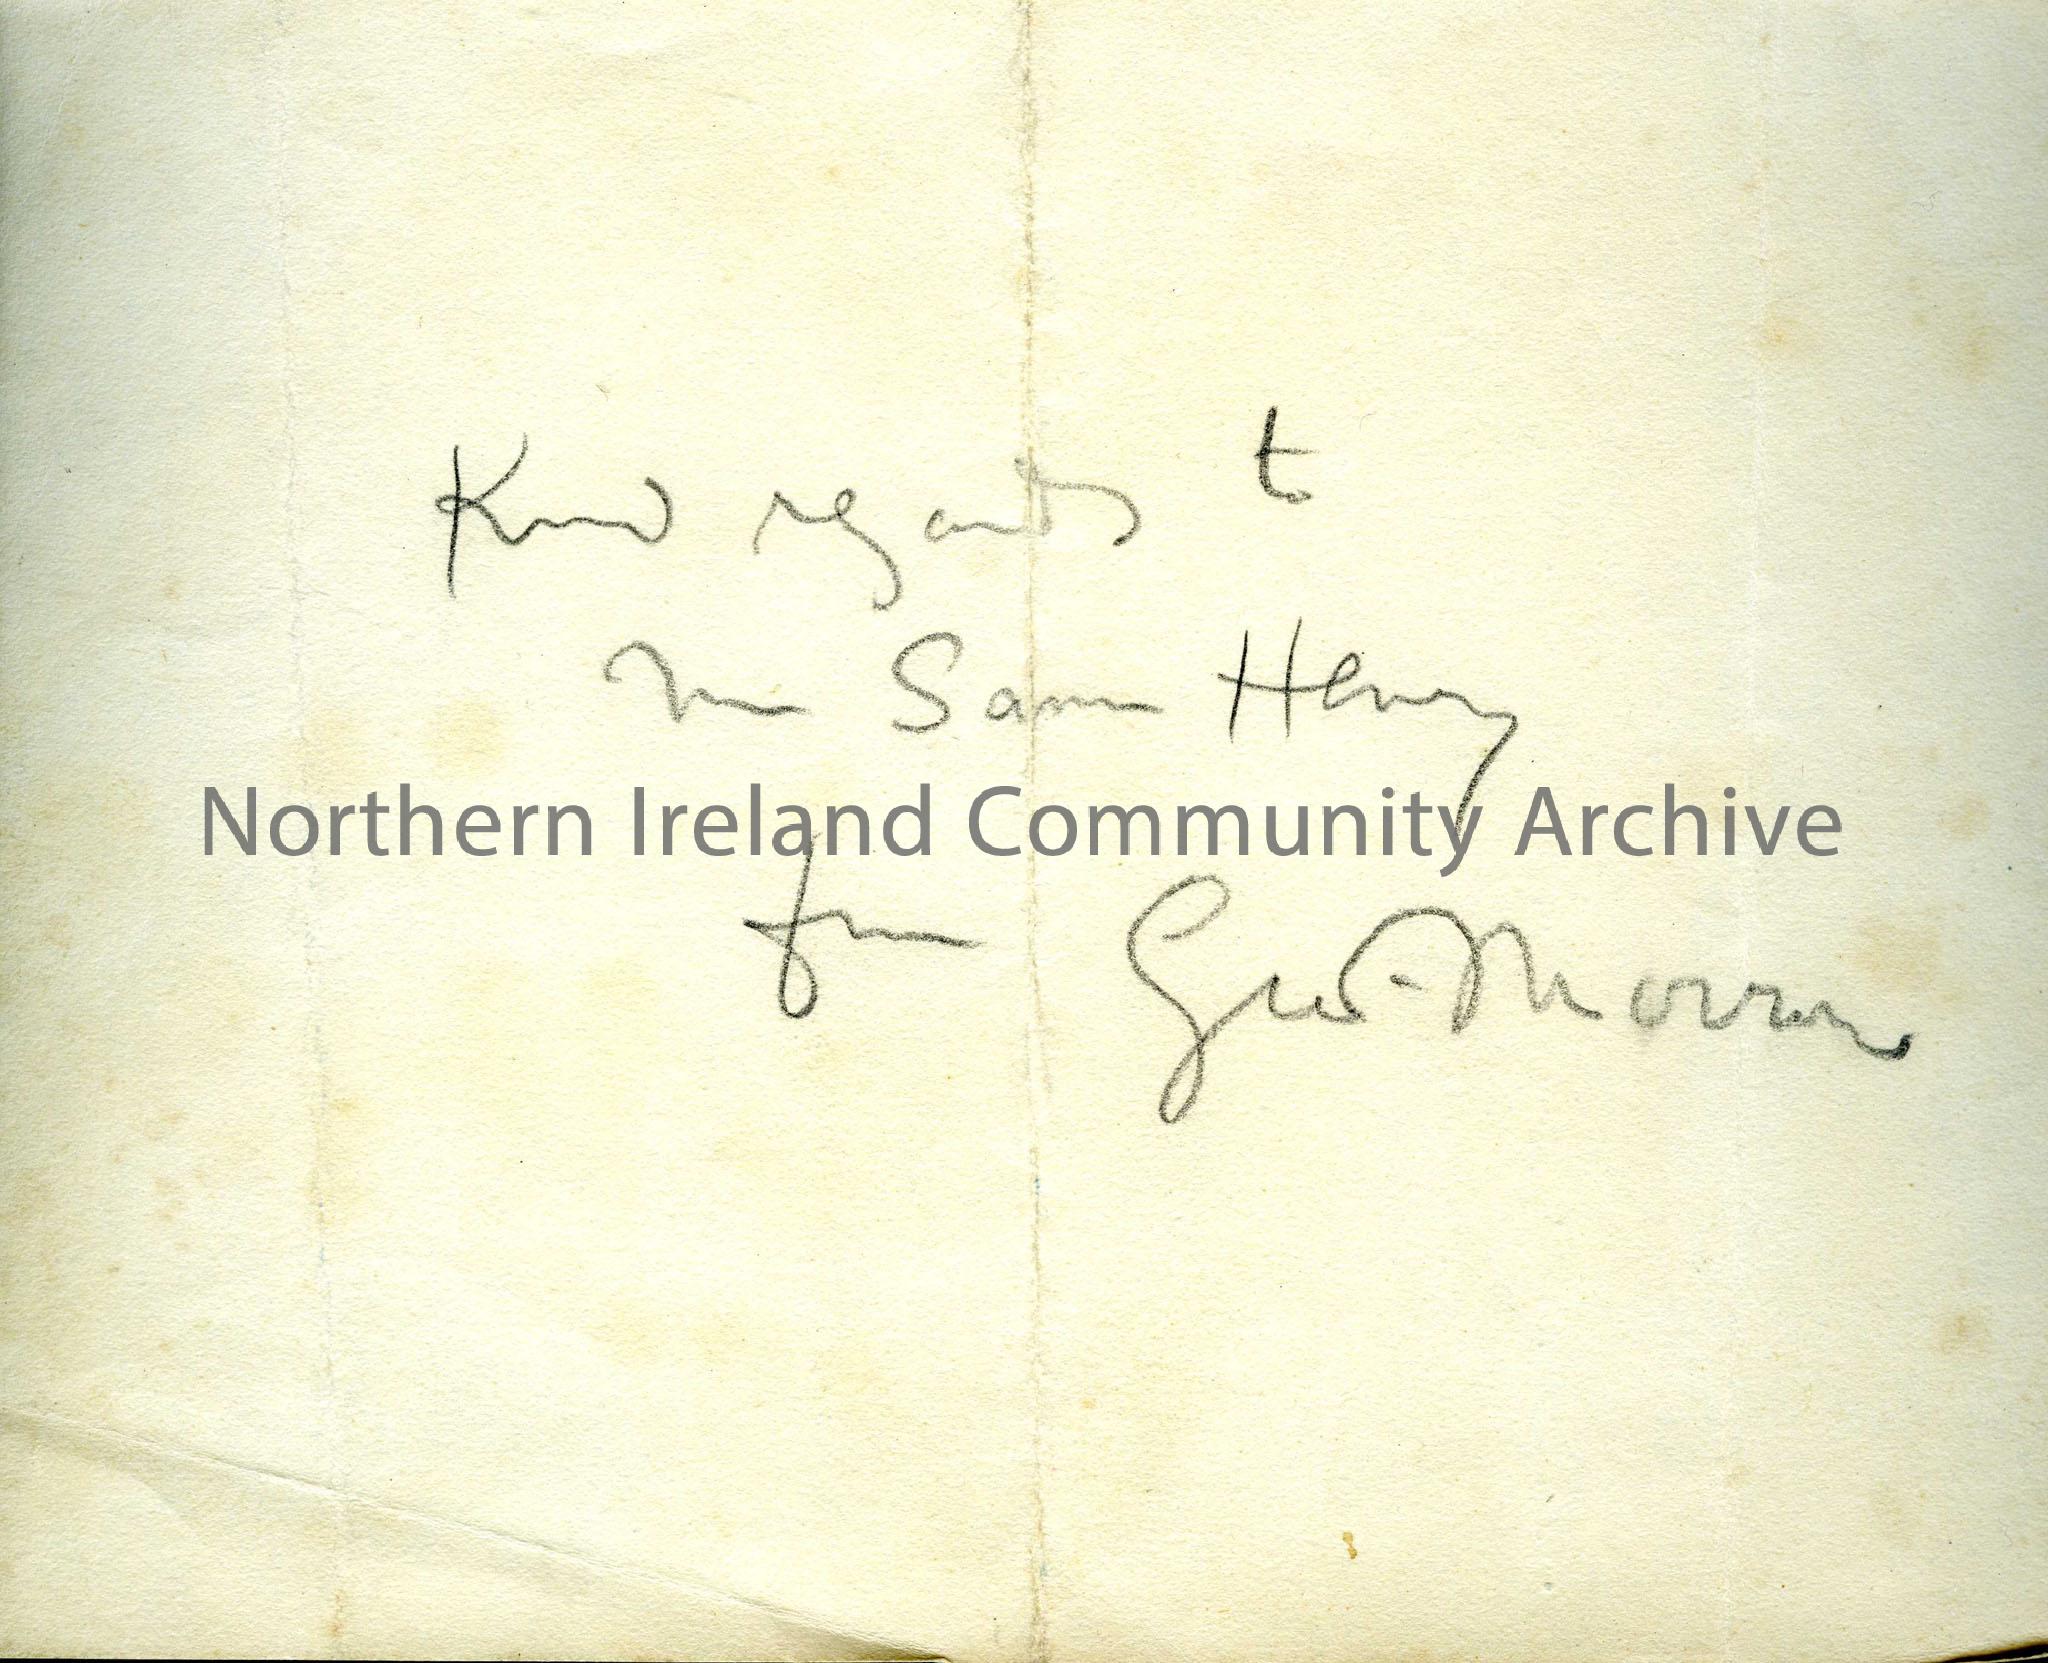 Kind regards to
Mr Sam Henry
Northern Ireland Community Archive
from Geo. Morrow